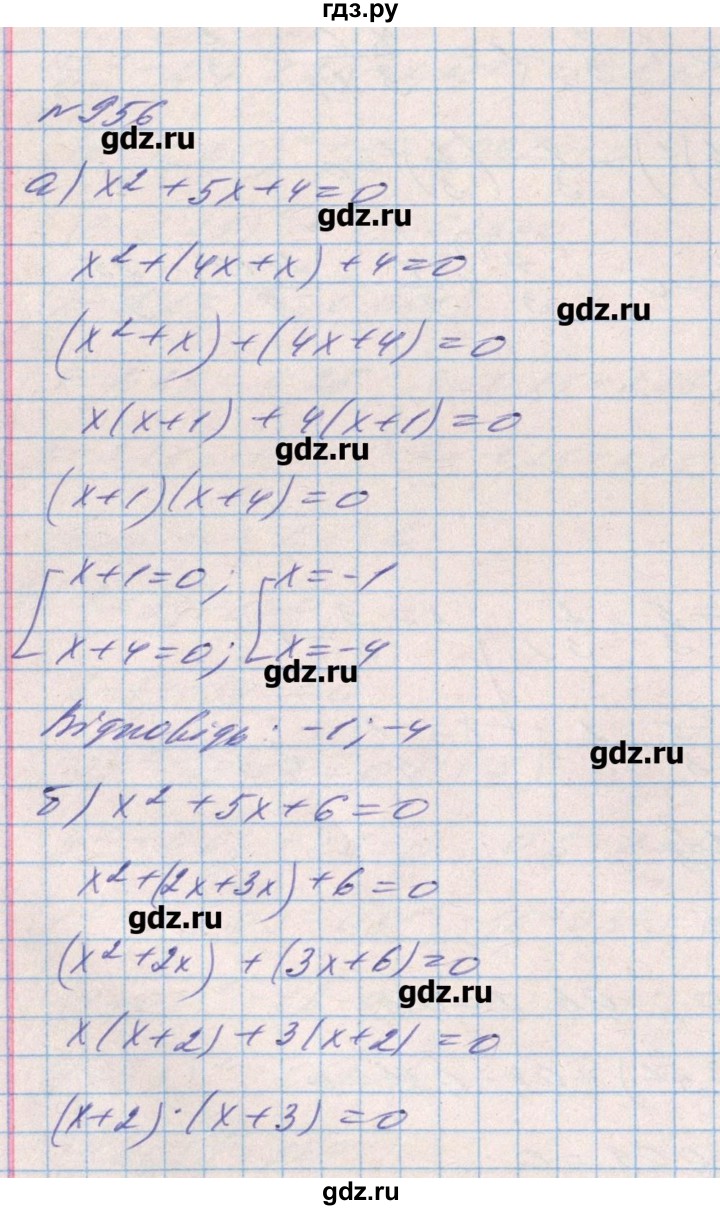 гдз.ру
№956
gdz.ru
а) x² + 5x + 4 = 0
gdz.ru
x² + (4x + x) + 4 = 0
gdz.ru
(x² + x) + (4x + 4) = 0
x(x + 1) + 4(x + 1) = 0
gdz.ru
(x + 1)(x + 4) = 0
[x + 1 = 0; [x = -1
x + 4 = 0; x = -4
gdz.ru
Відповідь: -1; -4
gdz.ru
б) x² + 5x + 6 = 0
x² + (2x + 3x) + 6 = 0
gdz.ru
(x² + 2x) + (3x + 6) = 0
gdz.ru
x(x + 2) + 3(x + 2) = 0
(x + 2) · (x + 3) = 0
gdz.ru